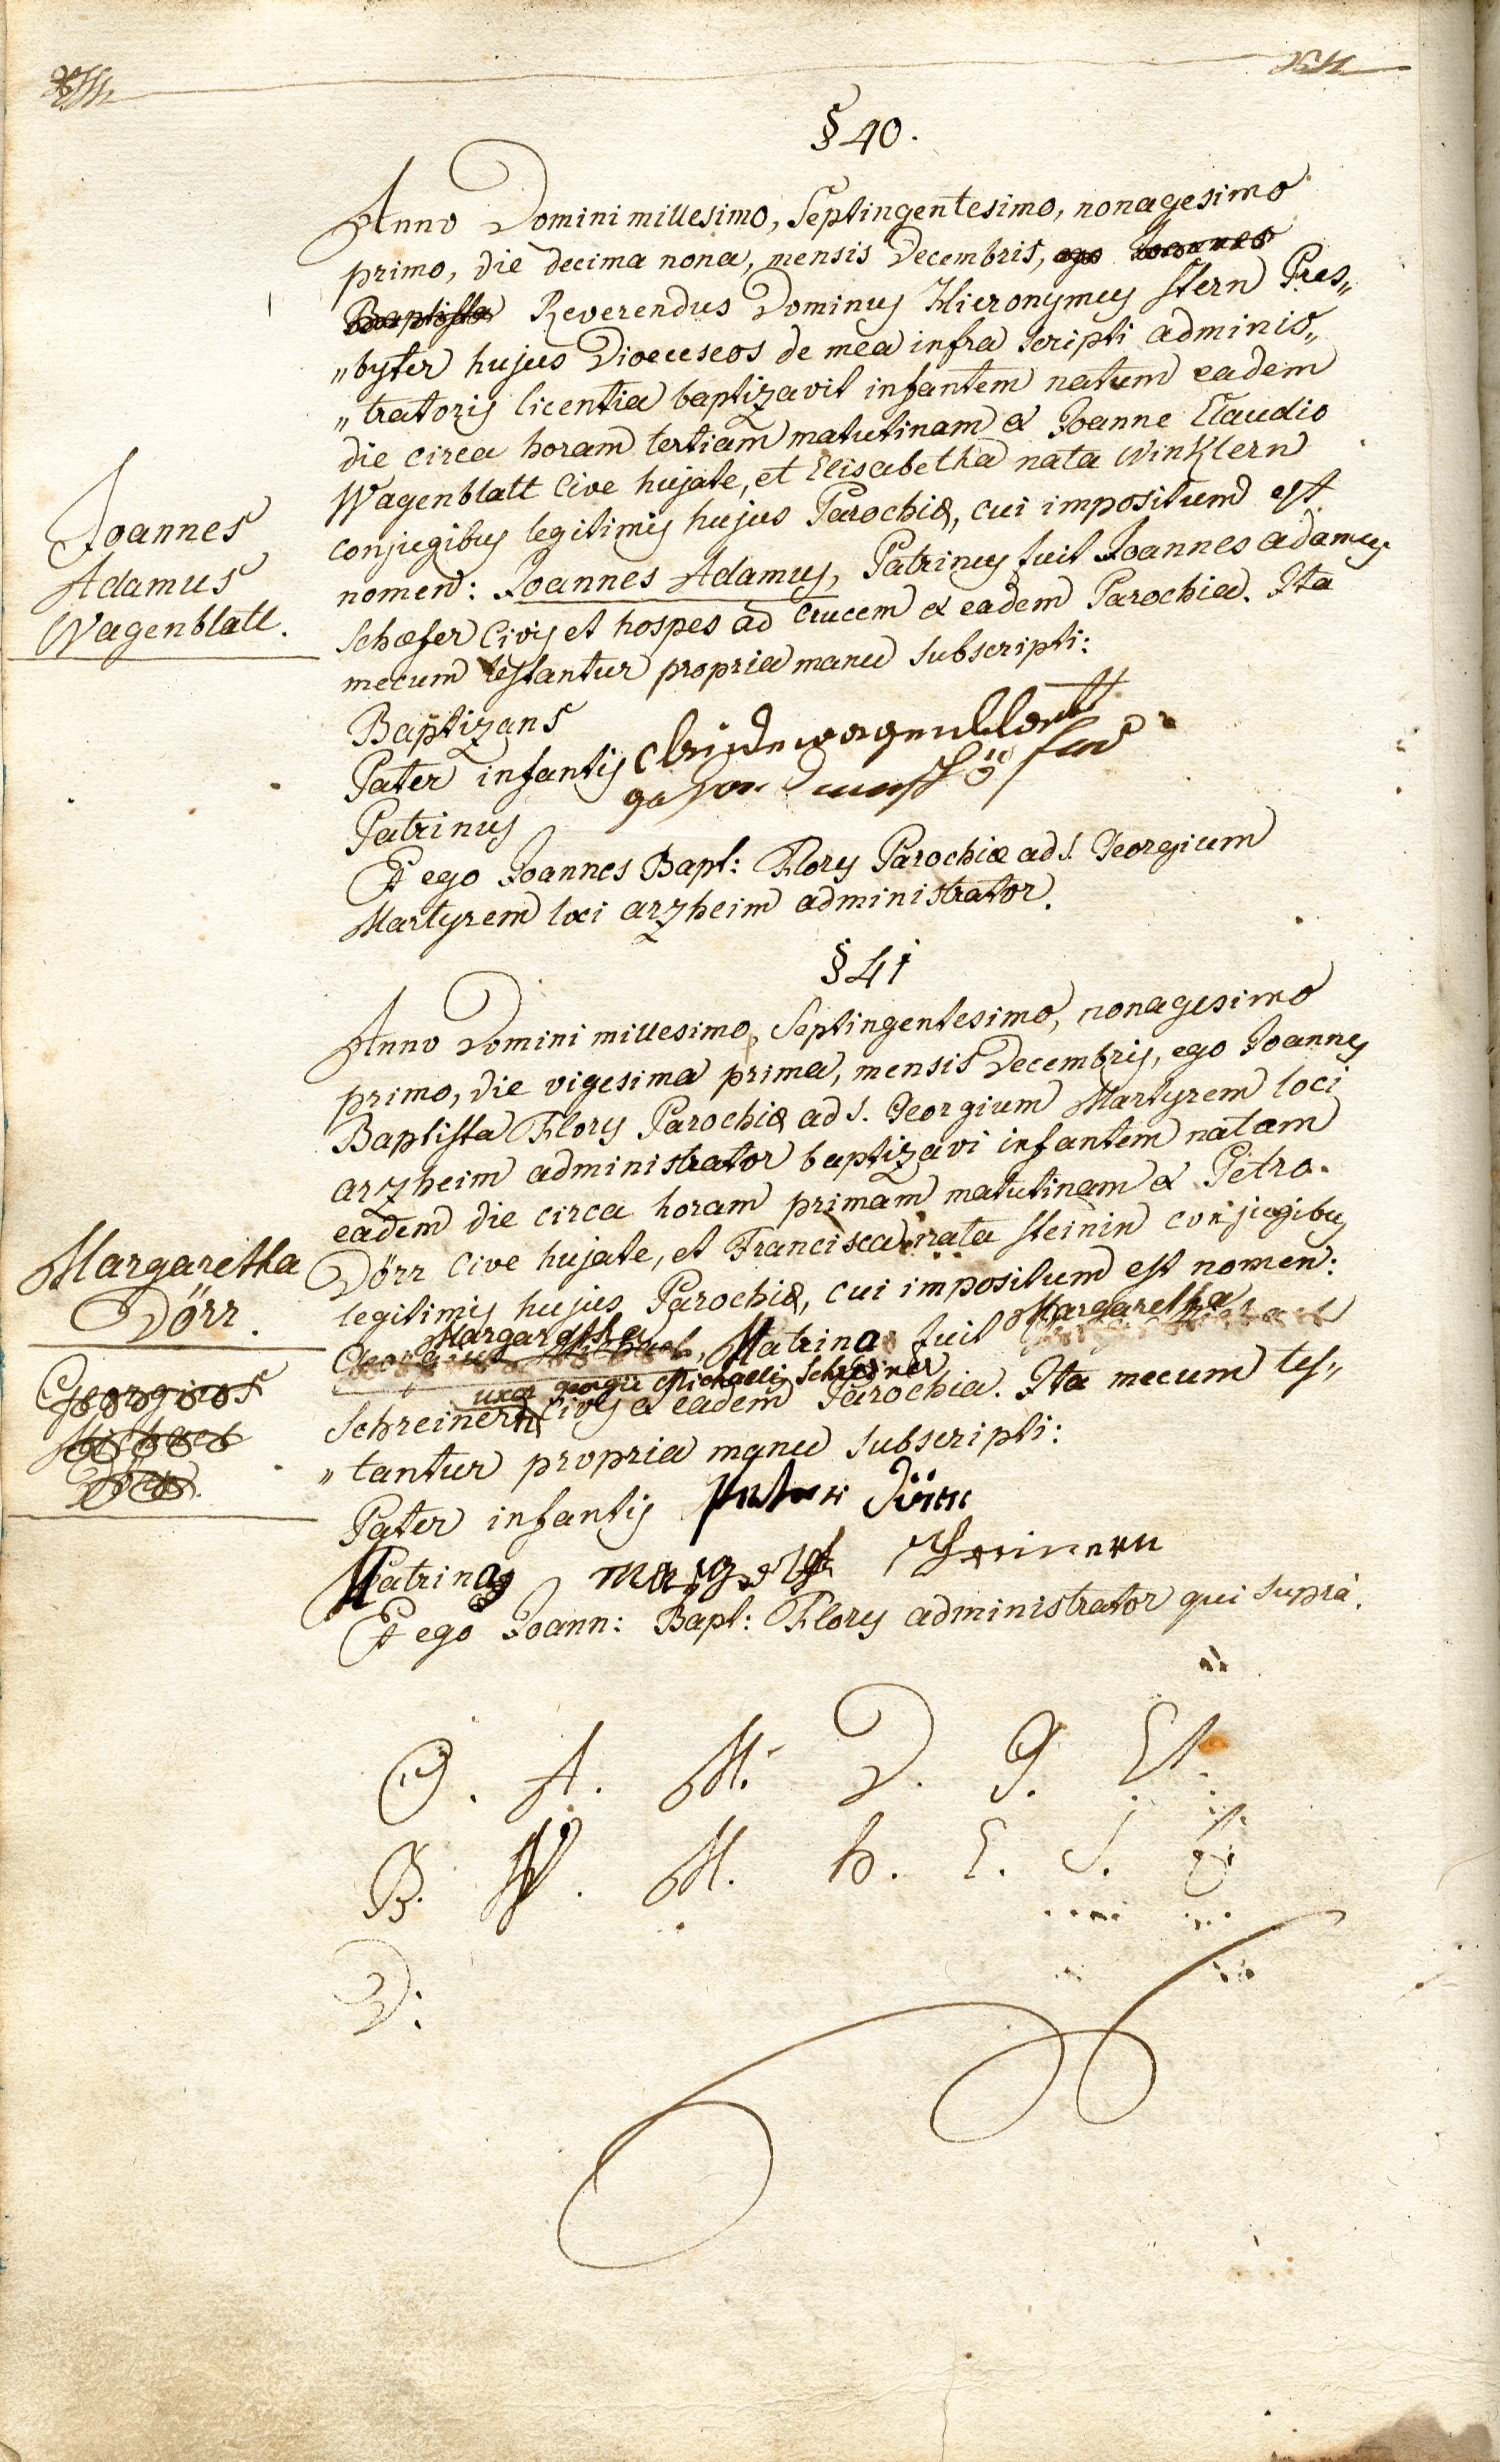 § 40.
Anno Domini millesimo, Septingentesimo, nonagesimo
primo, die decima nona, mensis Decembris, ego Joannes
Baptista Reverendus Dominus Hieronymus Stern Pres„
„byter hujus Dioeceseos de mea infra scripti adminis„
„tratoris licentia baptizavit infantem natum eadem
die circa horam tertiam matutinam ex Joanne Claudio
Wagenblatt Cive hujate, et Elisabetha nata Winklern
conjugibus legitimis hujus Parochiæ, cui impositum est
nomen: Joannes Adamus, Patrinus fuit Joannes adamus
Schæfer Civis et hospes ad crucem ex eadem Parochia. Ita
mecum testantur propria manu subscripti:
Joannes
Adamus
Wagenblatt.
Baptizans
Pater infantis
Patrinus
Et ego Joannes Bapt: Flory Parochiæ ad S. Georgium
Martyrem loci arzheim administrator.
§ 41
Anno Domini millesimo, Septingentesimo, nonagesimo
primo, die vigesima prima, mensis Decembris, ego Joannes
Baptista Flory Parochiæ ad S. Georgium Martyrem loci
arzheim administrator baptizavi infantem natam
eadem die circa horam primam matutinam ex Petro
Dörr Cive hujate, et Francisca nata Steinin conjugibus
legitimis hujus Parochiæ, cui impositum est nomen:
Margaretha Matrina fuit Margaretha
uxor georgii Michaelis Schreiner
Schreinern Civis ex eadem Parochia. Ita mecum tes„
„tantur propria manu subscripti:
Margaretha
Dörr.
Georgius
Michael
Dörr.
Pater infantis
Matrina
Et ego Joann: Bapt: Flory administrator qui supra.
O. A. M. D. G. Et.
B. V. M. h. E. S.
D: